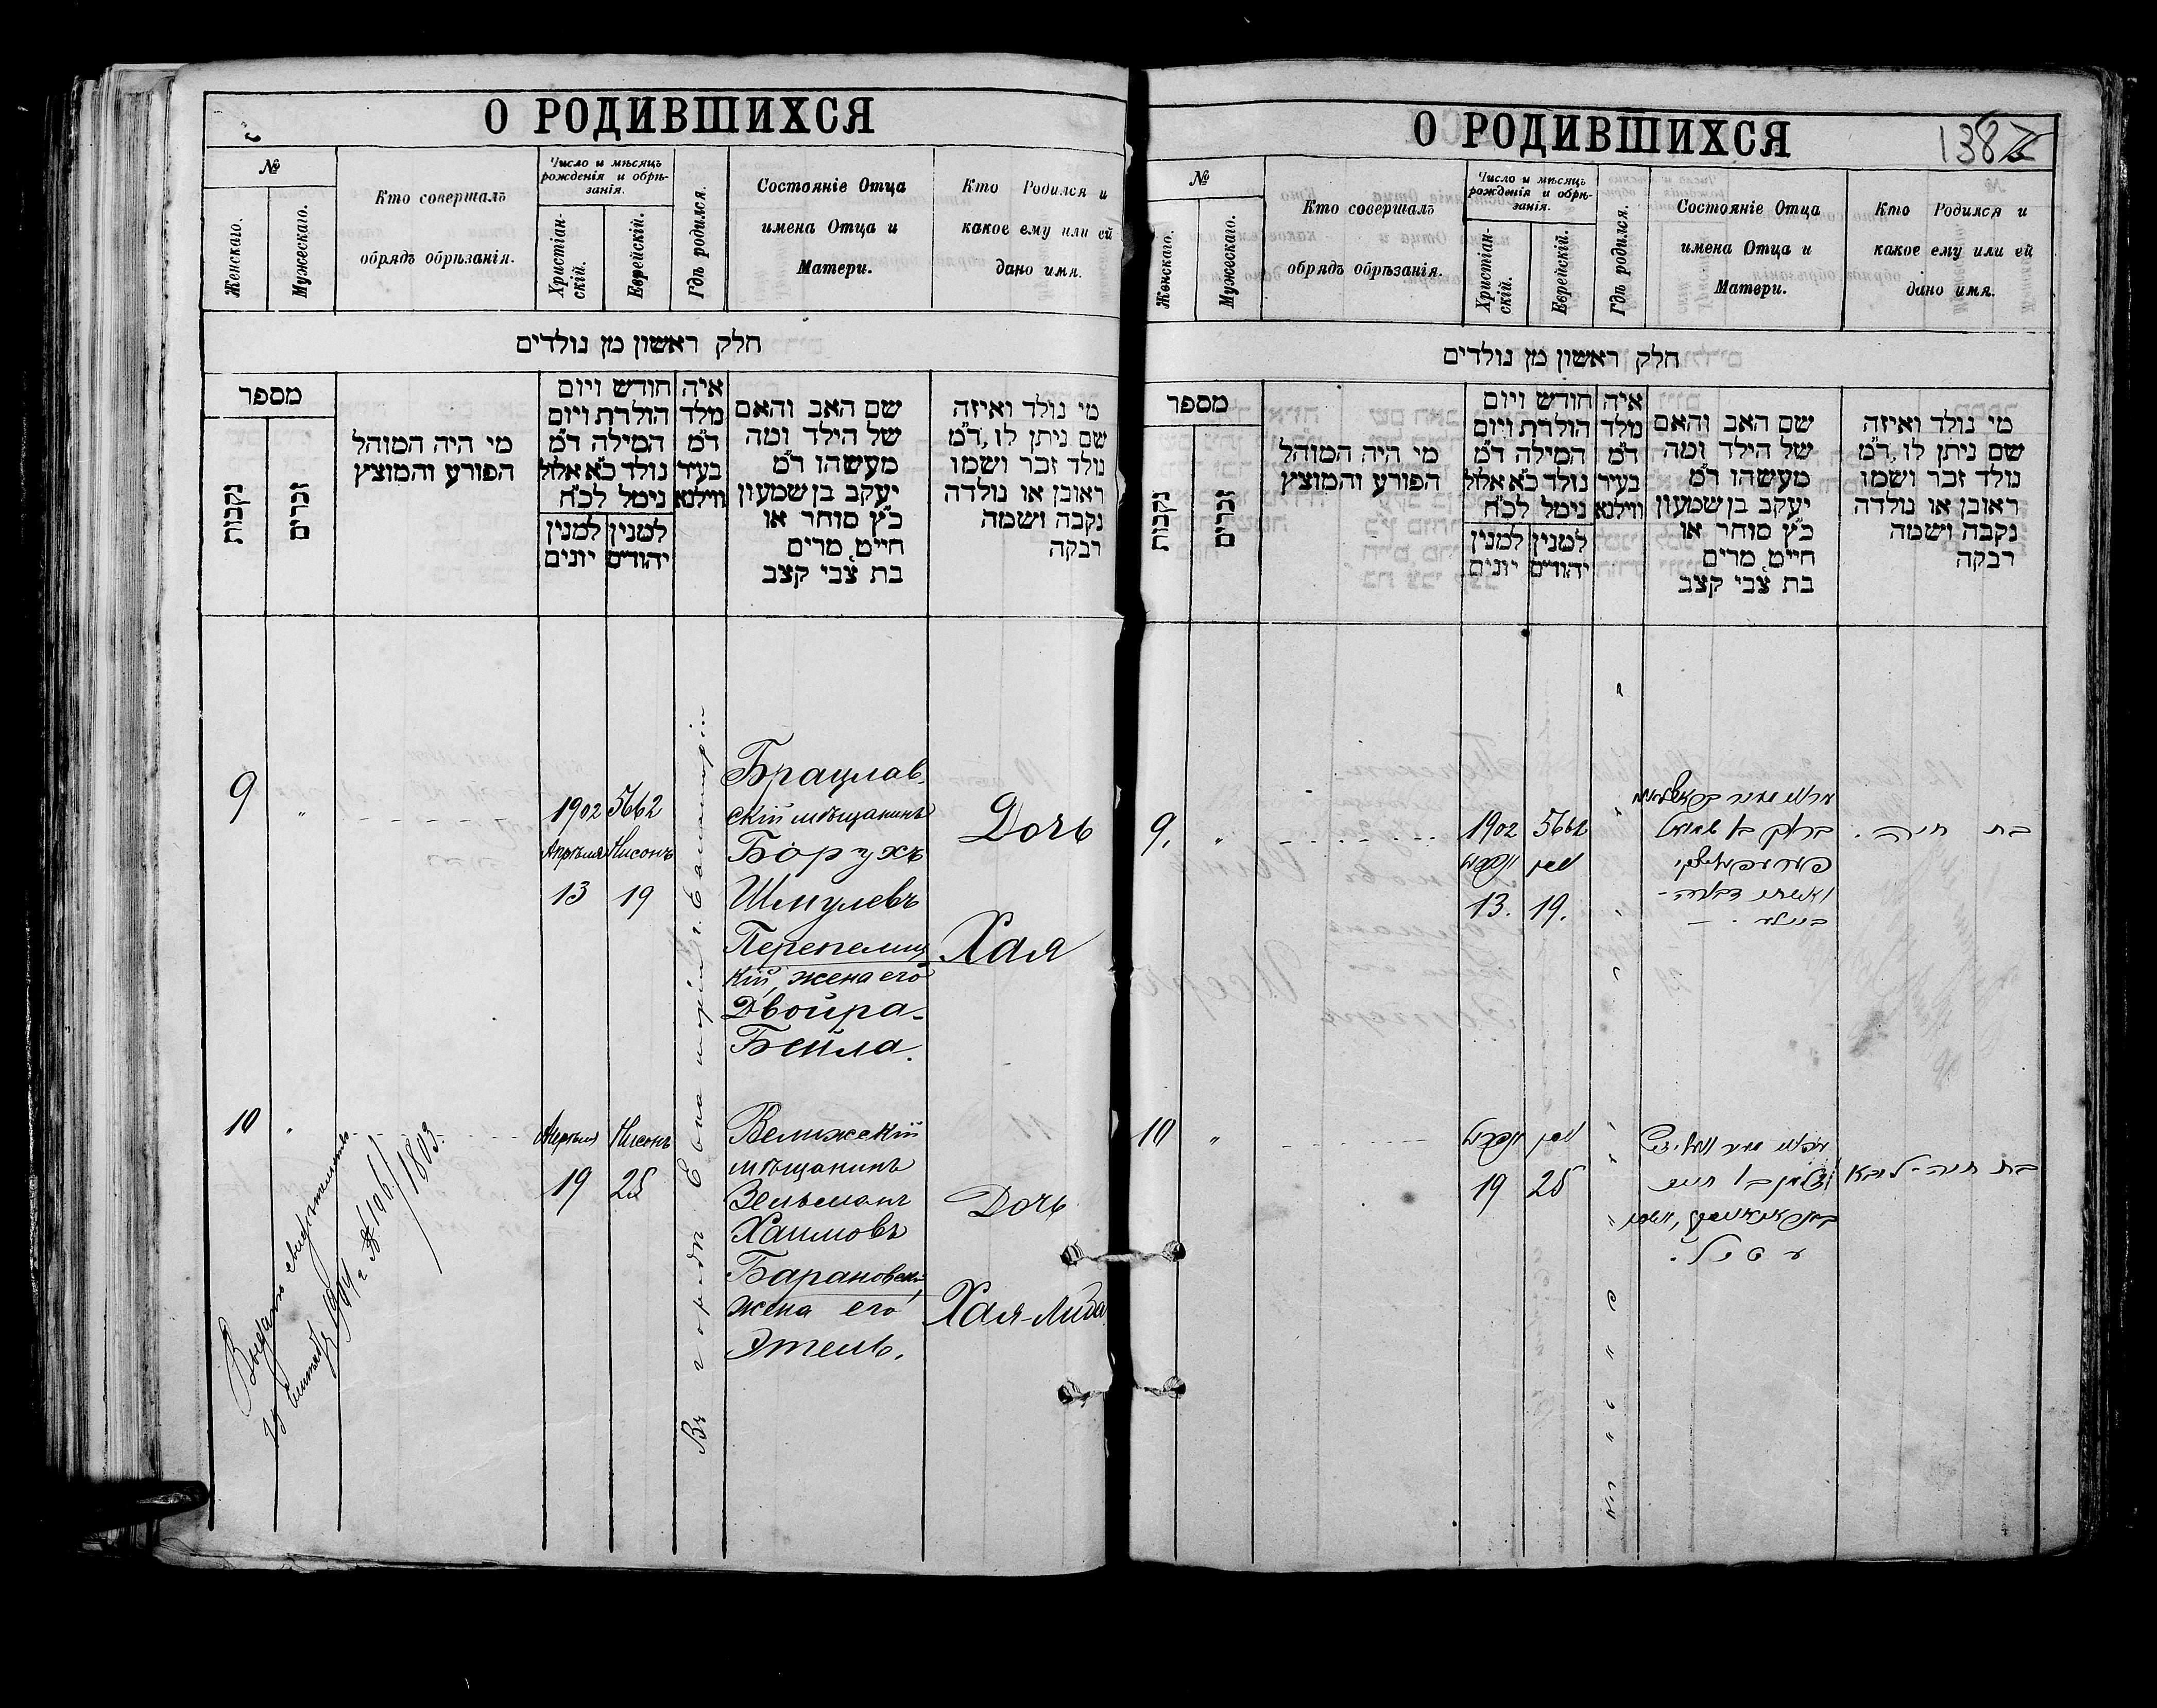 О РОДИВШИХСЯ
№
Женскаго.
Мужескаго.
Кто совершалъ
обрядъ обрѣзанія.
Число и мѣсяцъ
рожденія и обрѣ-
занія.
Христіан-
скій.
Еврейскій.
Гдѣ родился.
Состояніе Отца
имена Отца и
Матери.
Кто Родился и
какое ему или ей
дано имя.
חלק ראשון מן נולדים
מספר
נקבות
זכרים
מי היה המוהל
הפורע והמוצץ
חודש ויום
הולדת ויום
המילה ד"מ
נולד כ"א אלול
נימל לכ"ח
למנין
יונים
למנין
יהודים
איה
מלד
ד"מ
בעיר
ווילנא
שם האב והאם
של הילד ומה
מעשהו ד"מ
יעקב בן שמעון
כ"ץ סוחר או
חייט, מרים
בת צבי קצב
מי נולד ואיזה
שם ניתן לו, ד"מ
נולד זכר ושמו
ראובן או נולדה
נקבה ושמה
רבקה
9
"
1902
Апрѣля
13
5662
Нисонъ
19
Брацлав-
скій мѣщанинъ
Борухъ
Шмулевъ
Перепелиц
кій, жена его
Двойра-
Бейла.
Дочь
Хая
10
Апрѣля
19
Нисонъ
25
Велижскій
мѣщанинъ
Зельманъ
Хаимовъ
Барановскій,
жена его
Этель.
Дочь
Хая-Либа
Выдано свидѣтельство
1904 г. № 1961/1803
О РОДИВШИХСЯ
138
№
Женскаго.
Мужескаго.
Кто совершалъ
обрядъ обрѣзанія.
Число и мѣсяцъ
рожденія и обрѣ-
занія.
Христіан-
скій.
Еврейскій.
Гдѣ родился.
Состояніе Отца
имена Отца и
Матери.
Кто Родился и
какое ему или ей
дано имя.
חלק ראשון מן נולדים
מספר
נקבות
זכרים
מי היה המוהל
הפורע והמוצץ
חודש ויום
הולדת ויום
המילה ד"מ
נולד כ"א אלול
נימל לכ"ח
למנין
יונים
למנין
יהודים
איה
מלד
ד"מ
בעיר
ווילנא
שם האב והאם
של הילד ומה
מעשהו ד"מ
יעקב בן שמעון
כ"ץ סוחר או
חייט, מרים
בת צבי קצב
מי נולד ואיזה
שם ניתן לו, ד"מ
נולד זכר ושמו
ראובן או נולדה
נקבה ושמה
רבקה
9.
"
1902
אפריל
13.
5662
ניסן
19.
ברוך בן שמואל
ואשתו דבורה-
ביילע
בת חיה.
10
"
אפריל
19
ניסן
25
זלמן בן חיים
בת חיה-ליבא